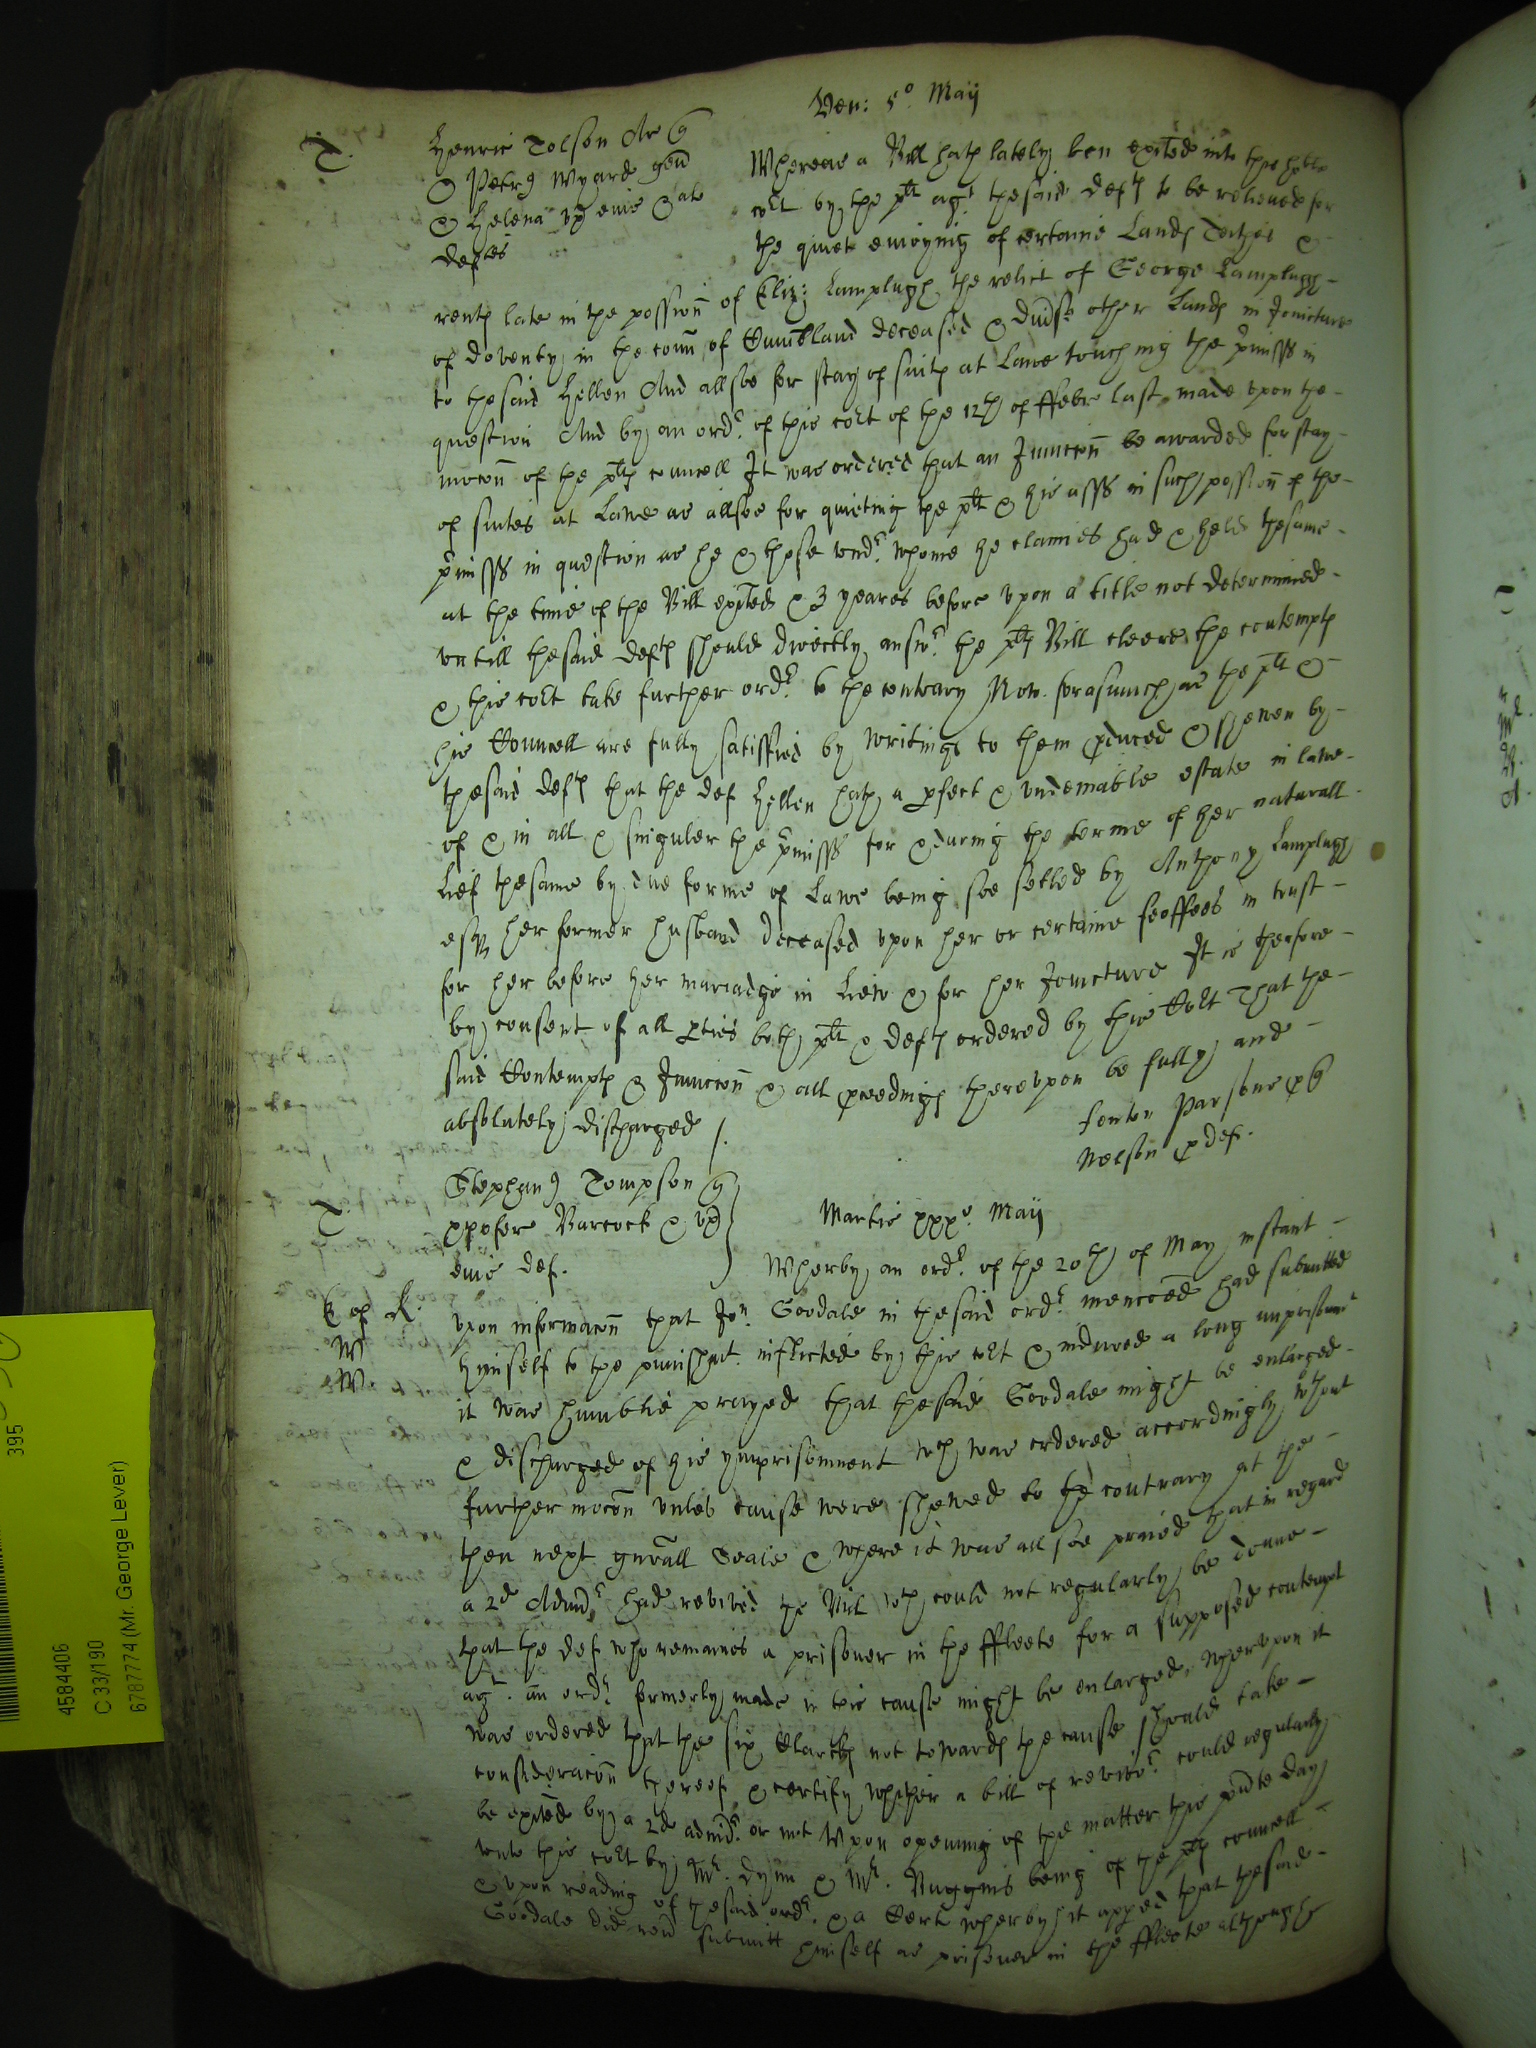 Ven: 5o Maij
T.
Henric Tolson Ar q
& Petrus Wyard gen
& Helena ux eius & al
deftes
Whereas a Bill hath lately ben exited into this hoble
cort by the plt agt the said defts to be relieued for
the quiet enioyning of certaine Lands Tithes &
rents late in the possion of Eliz: Lamplugh the relict of George Lamplugh
of doventy in the coun of Cumbland deceased & divse other Lands in Joincture
to the said Hellen And allsoe for stay of suits at Lawe touching the pmisss in
question And by an ordr of this cort of the 12th of ffebr last made upon the
mocon of the plts councell It was ordered that an Iniuccon be awarded for stay
of suites at Lawe as allsoe for quieting the plt & his asss in such possion of the
pmisss in question as he & those vndr whome he claimes had & held the same
at the time of the Bill exited & 3 yeares before vpon a title not determined
vntill the said defts should directly answr the plts Bill cleere the contempts
& this cort take further ordr to the contrary Now forasmuch as the plt &
his Councell are fully satisfied by writings to them pduced & shewen by
the said defts that the def Hellen hath a pfect & vndeniable estate in lawe
of & in all & singuler the pmisss for & during the terme of her naturall
Lief the same by due forme of Lawe being soe setled by Anthony Lamplugh
esqr her former husband deceased vpon her or certaine feoffees in trust
for her before her mariadge in Liew & for her Joincture It is therfore
by consent of all pties both plt & defts ordered by this Cort That the
said Contempts & Iniuccon & all pceedings therevpon be fully and
absolutely discharged /.
Fenton Parsons p q
Nelson p def.
T.
Stephanus Tompson q
xpofer Barcock & ux
eius def.
Martis xxxo Maij
Wherby an ordr of the 20th of May instant
E of R:
W
W.
vpon informacon that Jon Goodale in the said ordr mencoed had submitted
himself to the punishmt inflicted by this cort & indured a long imprisonmt
it was humblie prayed that the said Goodale might be enlarged
& discharged of his ymprisonment wch was ordered accordingly wthout
further mocon vnles cause were shewed to the contrary at the
then next gnrall Seale & where it was allsoe praied that in regard
a 2d Admdr had revived the Bill wch could not regularly be donne
that the def who remaines a prisoner in the ffleete for a supposed contempt
agt an ordr formerly made in this cause might be enlarged, Wherevpon it
was ordered that the six Clarks not towards the cause should take
consideracon thereof & certify whither a bill of revivr could regularly
be exited by a 2d admdr or not Vpon opening of the matter this pnte day
vnto this cort by Mr. Dynn & Mr. Nuggins being of the plts councell
& vpon reading of the said ordr & a Cert wherby it appred that the said
Goodale did now submitt himself as prisoner in the ffleete although
395
4584406
C 33/190
6787774 (Mr. George Lever)